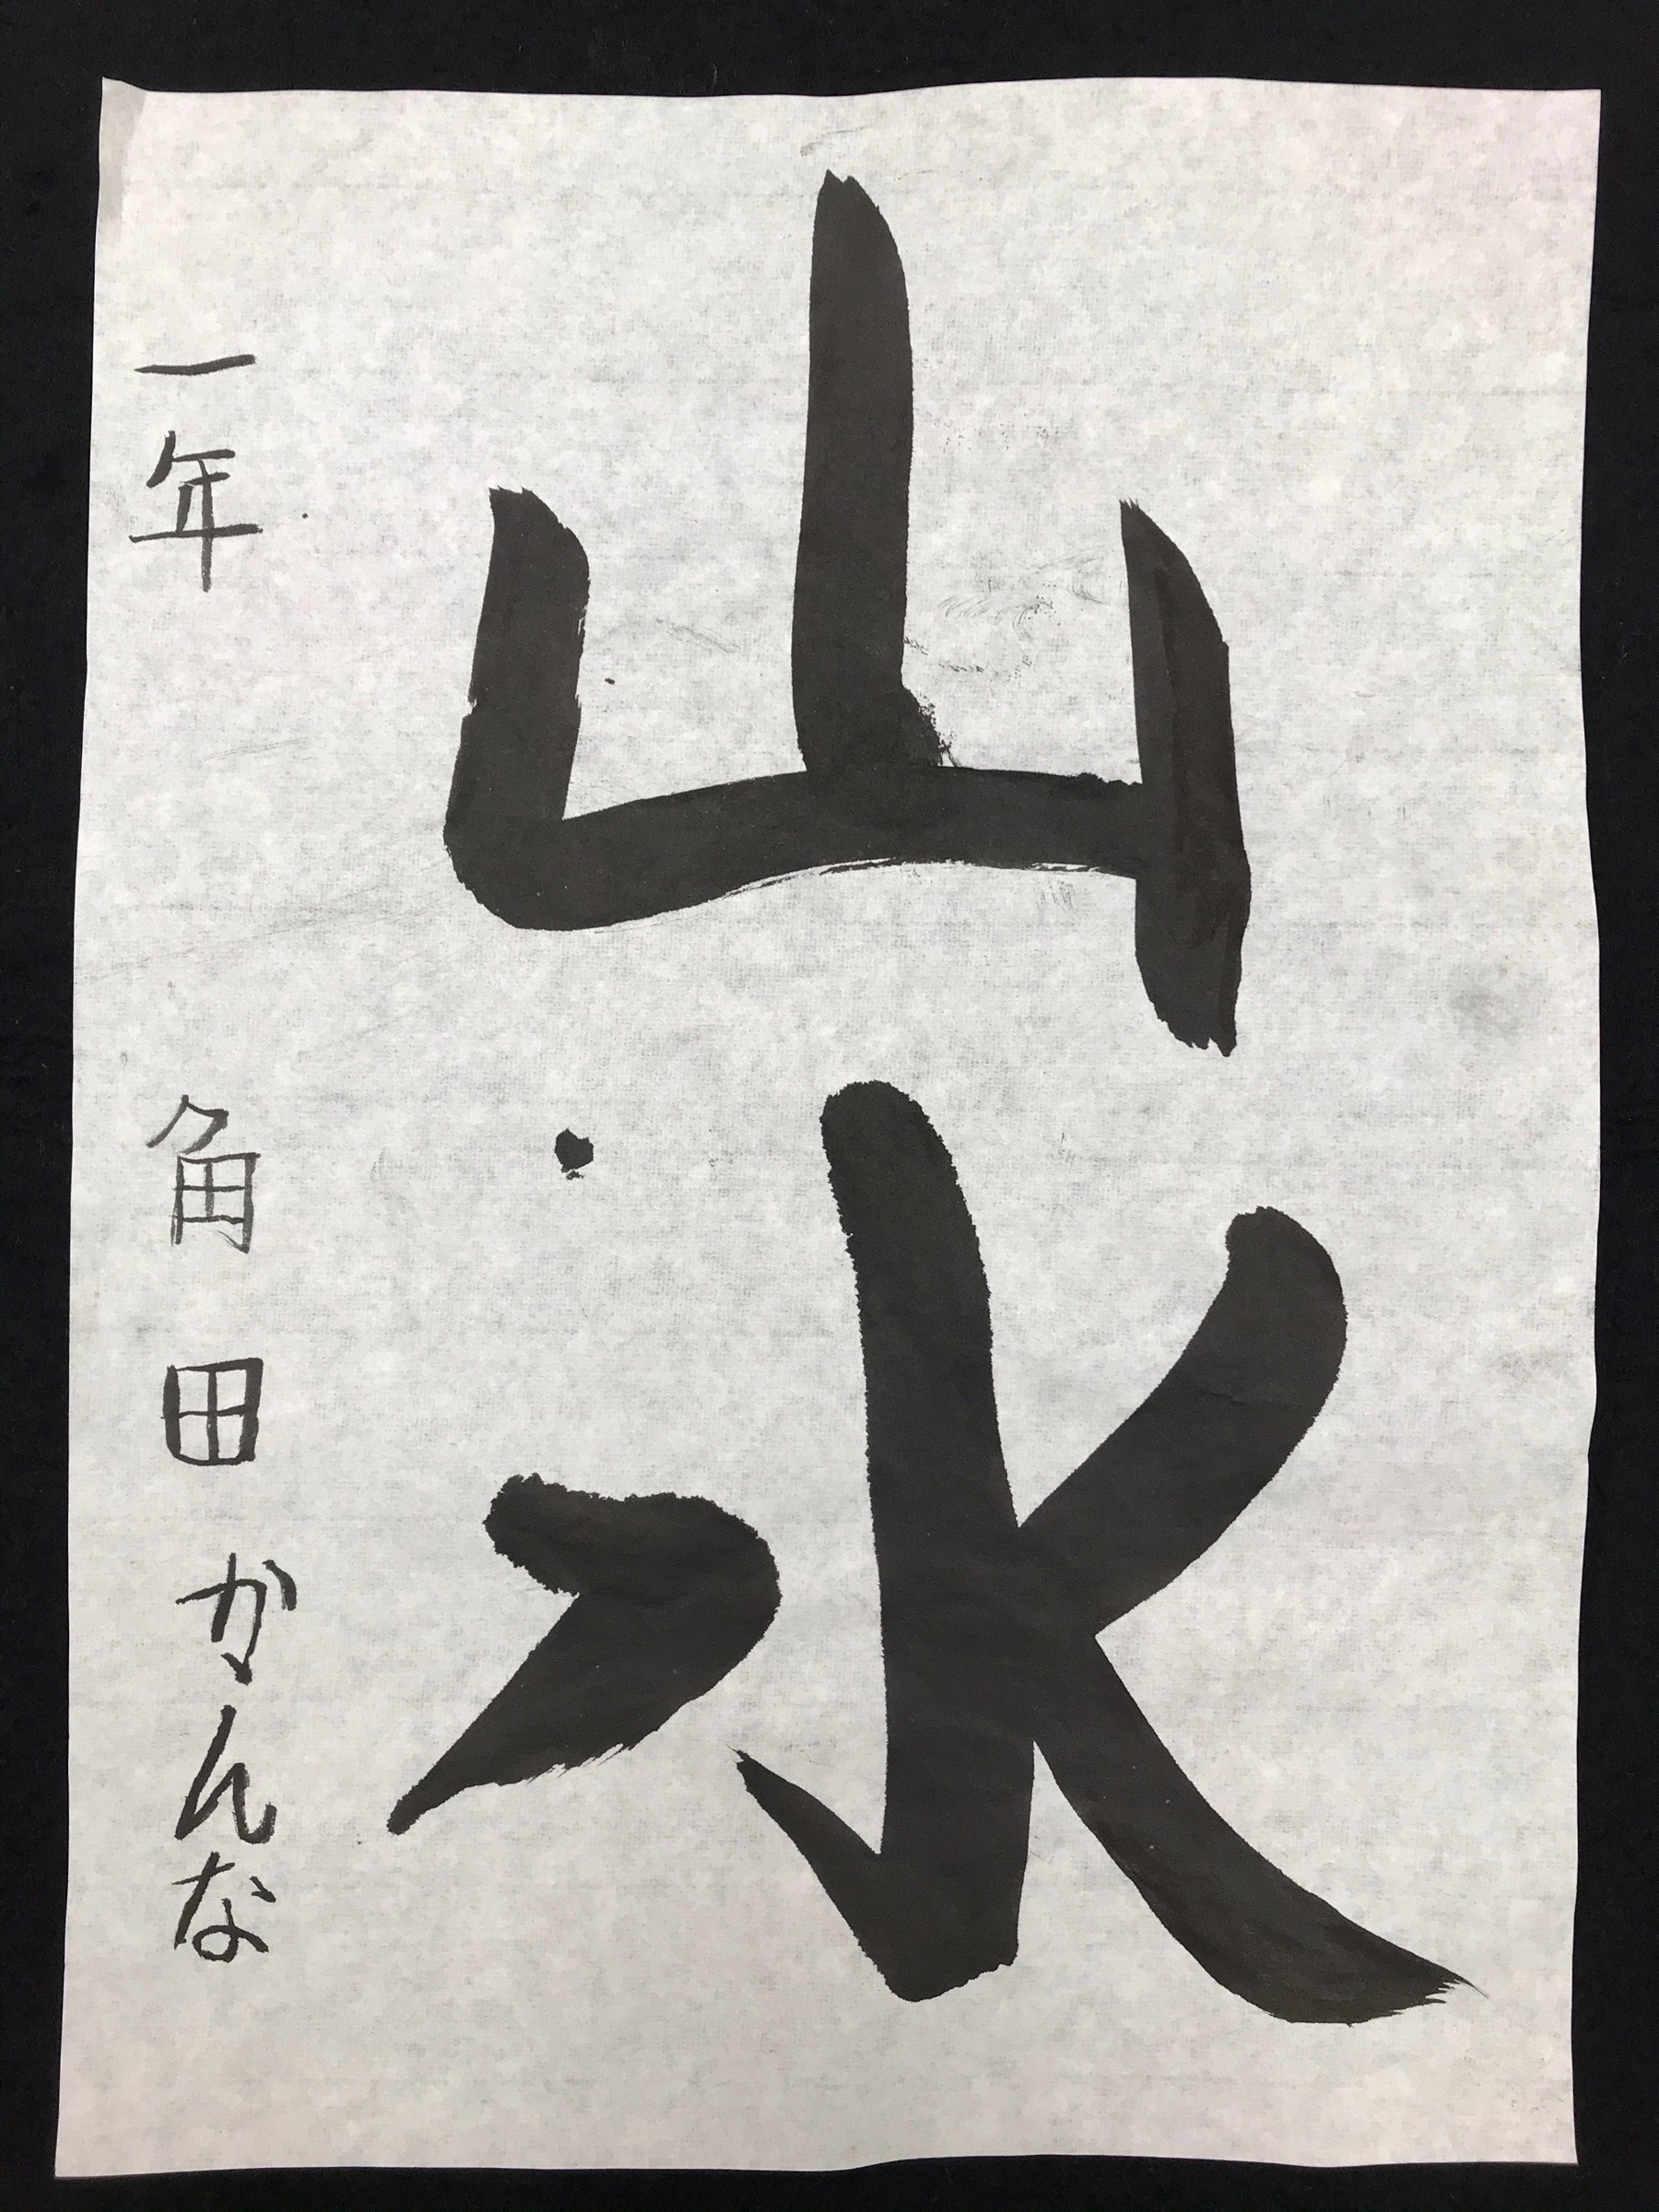 山水
一年 角田かんな